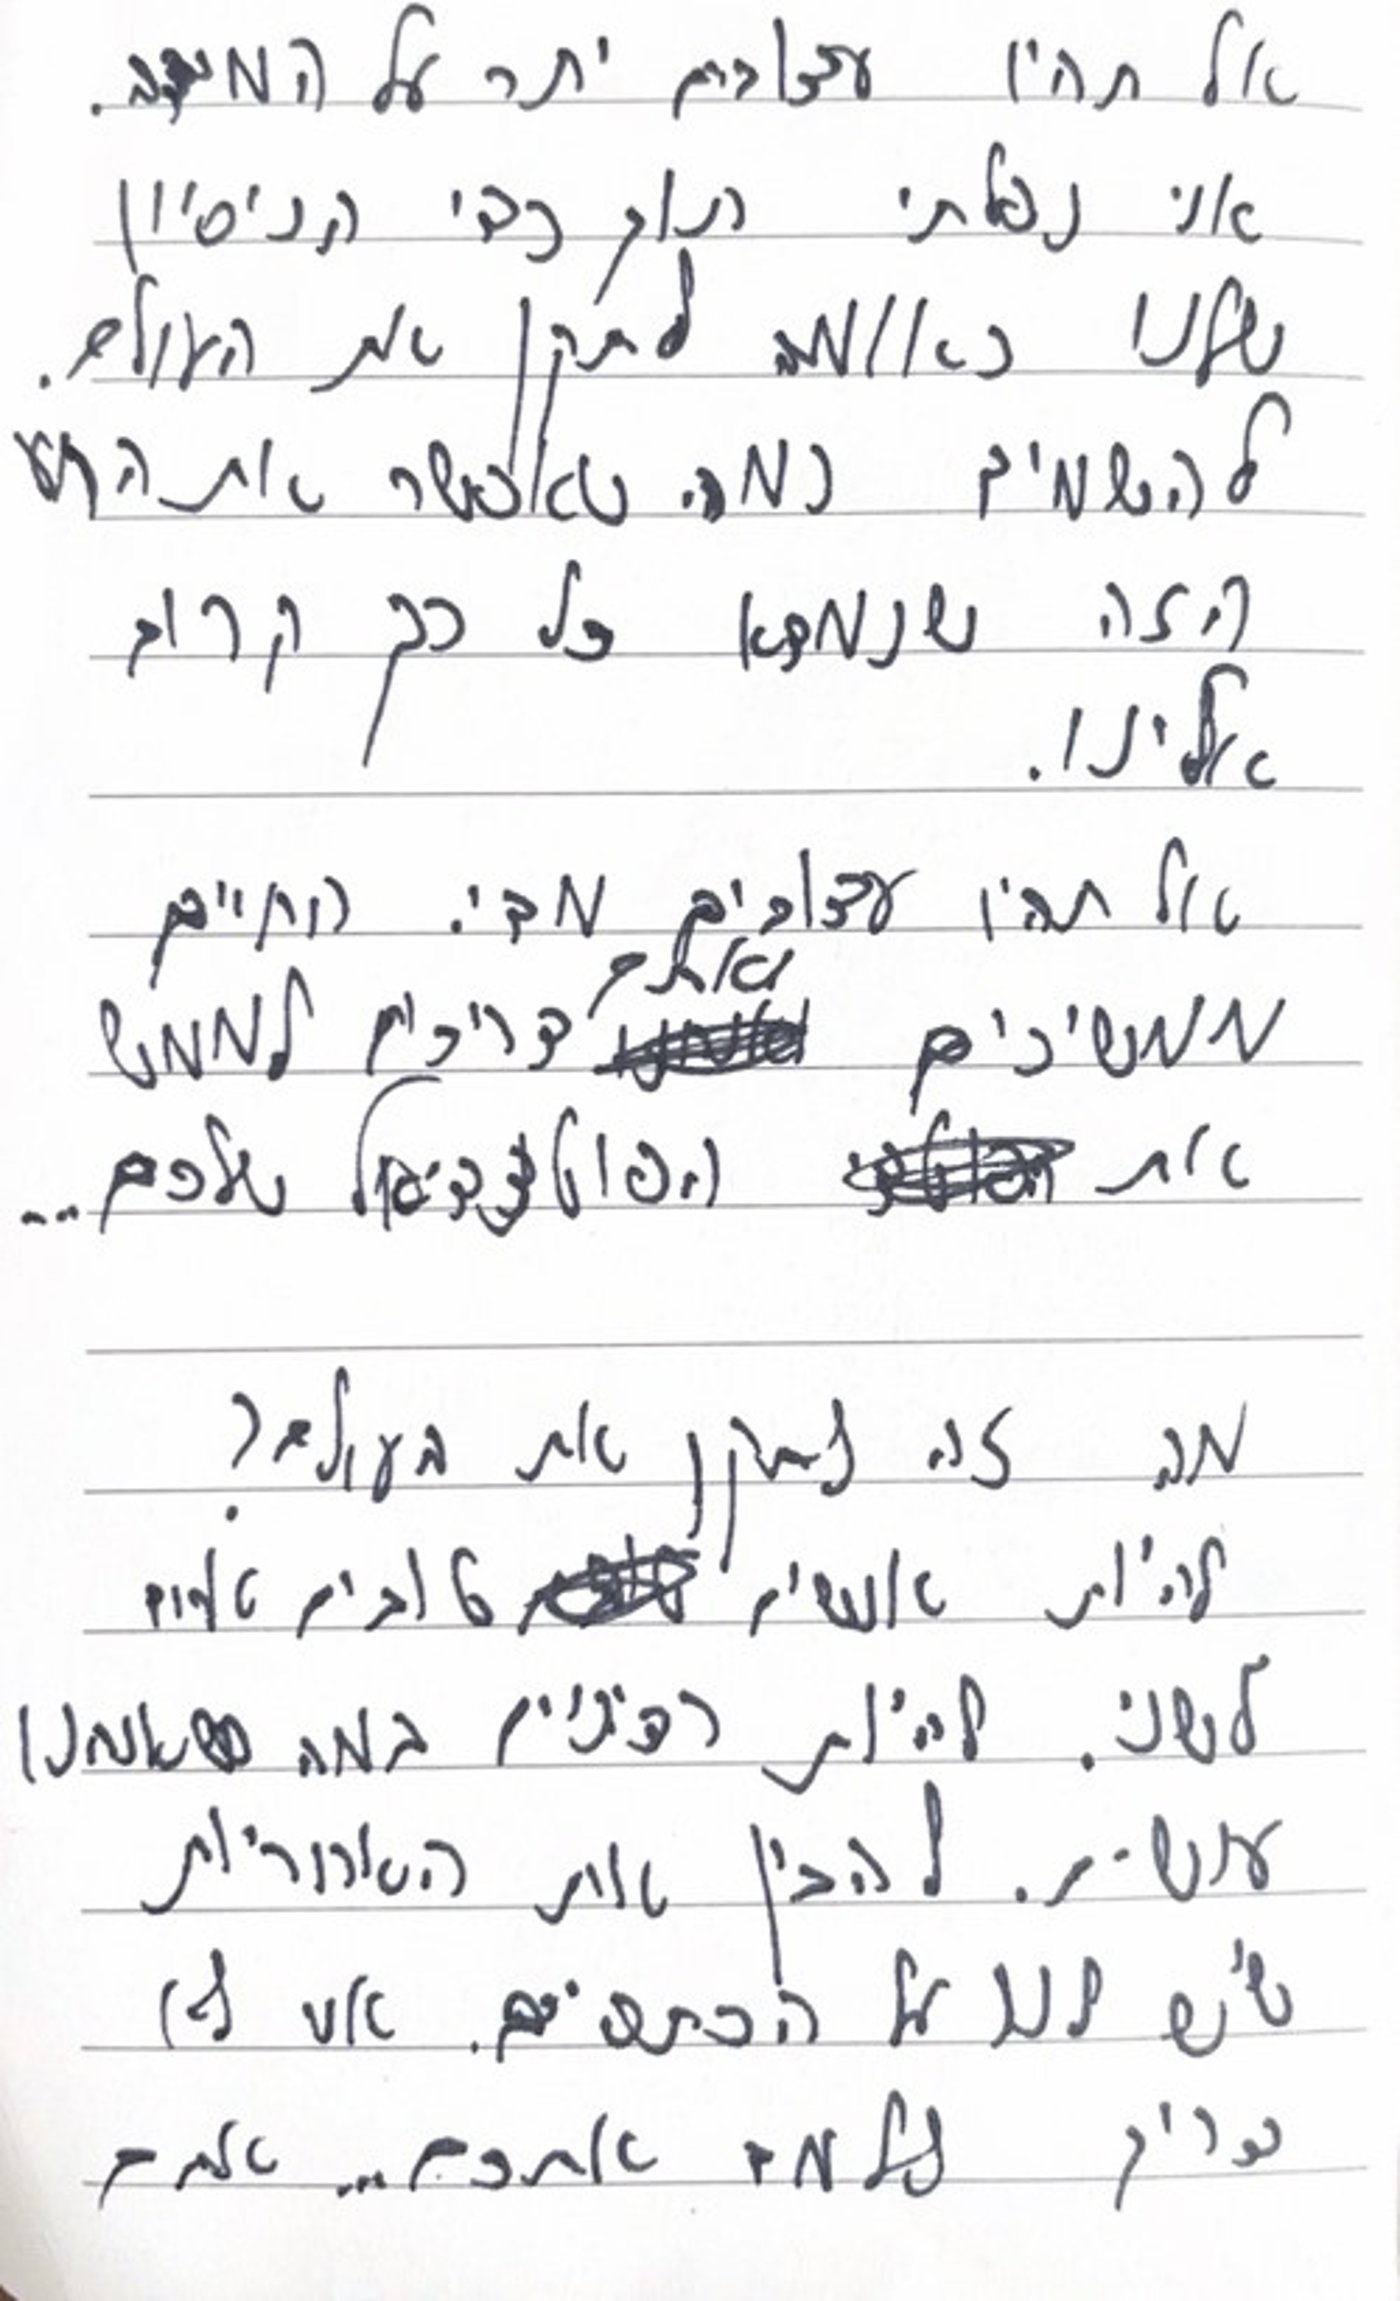 אל תהיו עצובים יתר על המידה.
אני נפלתי תוך כדי הניסיון
שלנו כאומה לתקן את העולם.
להשמיד כמה שאפשר את הרוע
הזה שנמצא כל כך קרוב
אלינו.
אל תהיו עצובים מדי. החיים
ממשיכים ואתם צריכים לממש
את הפוטנציאל שלכם...
מה זה לתקן את העולם?
להיות אנשים טובים אחד
לשני. להיות רציניים במה שאנחנו
עושים. להבין את האחריות
שיש לנו על הכתפיים. אני לא
צריך ללמד אתכם... אתם